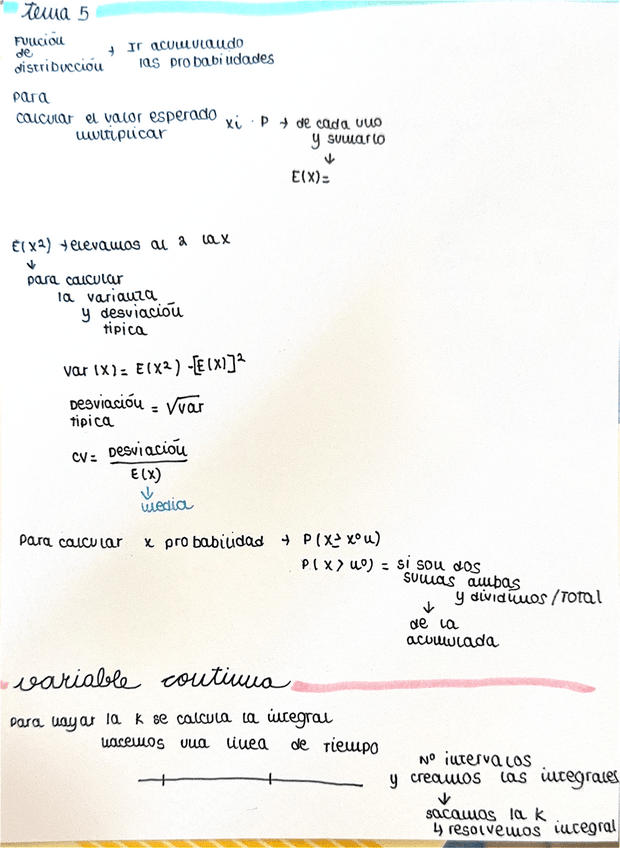 Tema 5
Función
de → Ir acumulando
distribucción las probabilidades
para
calcular el valor esperado xi · P → de cada uno
multiplicar y sumarlo
↓
E(X)=
E(X²) → elevamos al 2 la x
↓
para calcular
la varianza
y desviación
tipica
Var (X) = E(X²) - [E(X)]²
Desviación = √var
tipica
CV = Desviación
E(X)
↓
media
Para calcular x probabilidad → P(X≥ xºu)
P(X > uº) = si son dos
sumas ambas
y dividimos /Total
↓
de la
acumulada
variable continua
para hayar la K se calcula la integral
hacemos una linea de tiempo
Nº intervalos
y creamos las integrales
↓
sacamos la K
↳ resolvemos integral